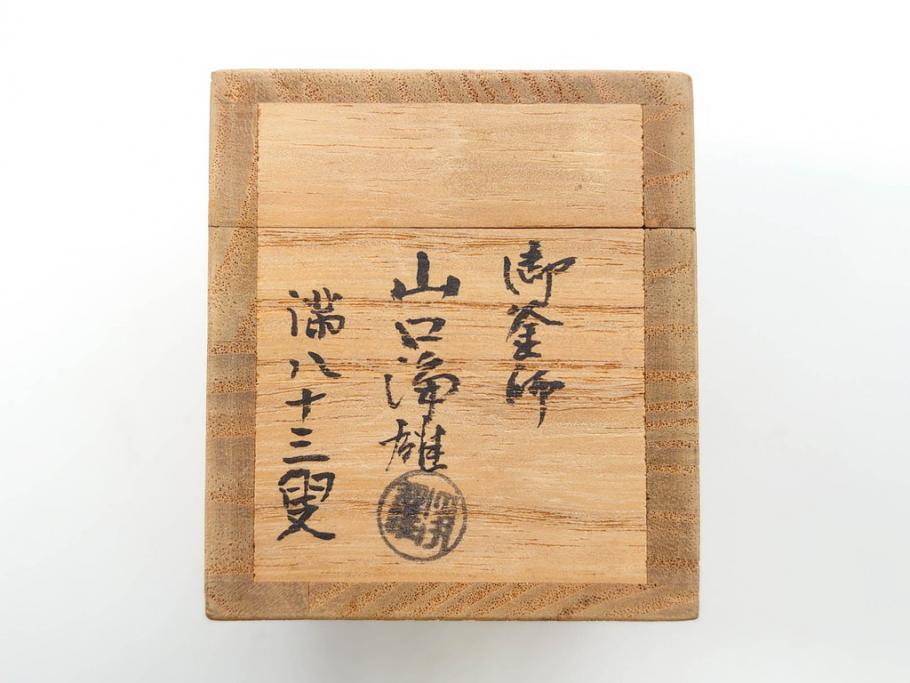 御釜師
山口浄雄
満八十三叟